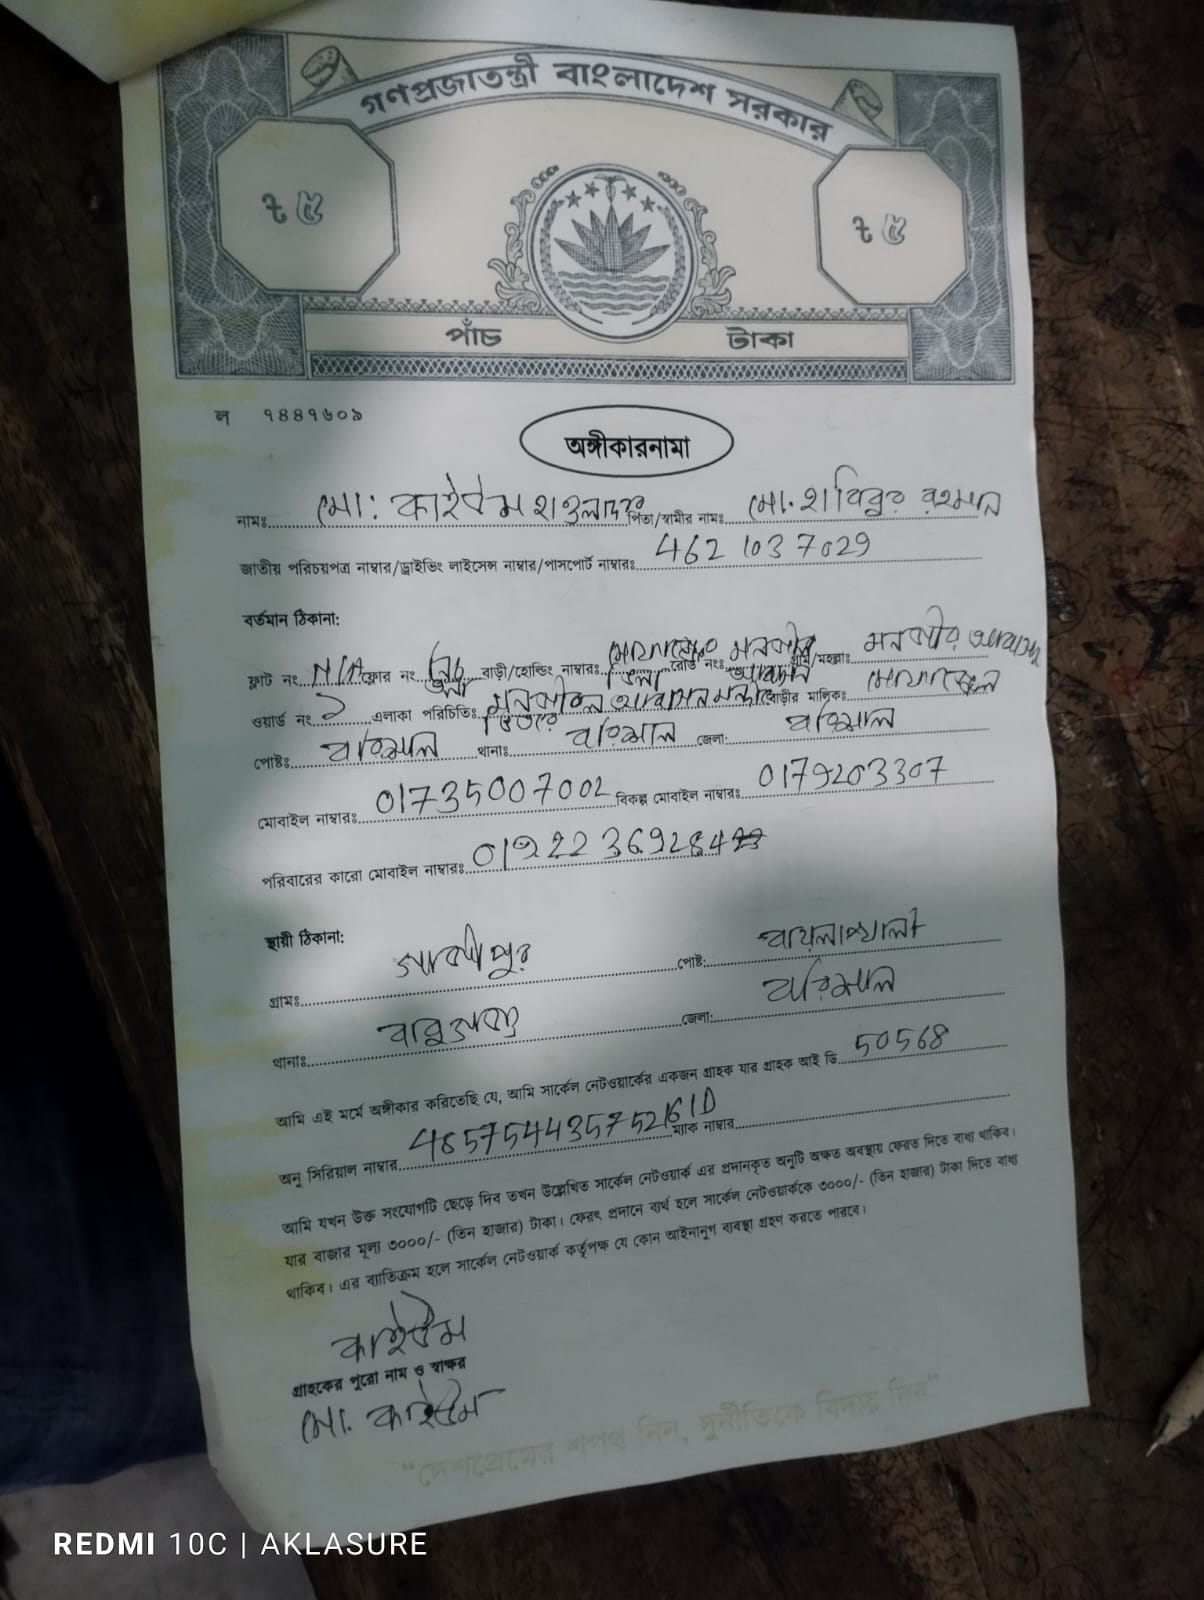 গণপ্রজাতন্ত্রী বাংলাদেশ সরকার
৳ ৫ ৳ ৫
পাঁচ টাকা
ল ৭৪৪৭৬০৯
অঙ্গীকারনামা
নামঃ মো: কাইউম হাওলাদার পিতা/স্বামীর নামঃ মো. হাবিবুর রহমান
জাতীয় পরিচয়পত্র নাম্বার/ড্রাইভিং লাইসেন্স নাম্বার/পাসপোর্ট নাম্বারঃ 462 103 7029
বর্তমান ঠিকানা:
ফ্লাট নং N/A ফ্লোর নং নিচ তলা বাড়ী/হোল্ডিং নাম্বারঃ রোড নং: গ্রাম/মহল্লাঃ
ওয়ার্ড নং ১ এলাকা পরিচিতি: বাড়ীর মালিক:
পোষ্টঃ বরিশাল থানাঃ বরিশাল জেলা: বরিশাল
মোবাইল নাম্বারঃ 01735007002 বিকল্প মোবাইল নাম্বারঃ 0179203307
পরিবারের কারো মোবাইল নাম্বারঃ
স্থায়ী ঠিকানা:
গ্রামঃ গাজীপুর পোষ্ট:
থানাঃ জেলা: বরিশাল
আমি এই মর্মে অঙ্গীকার করিতেছি যে, আমি সার্কেল নেটওয়ার্কের একজন গ্রাহক যার গ্রাহক আই ডি 50568
অনু সিরিয়াল নাম্বার 485754435752161D ম্যাক নাম্বার
আমি যখন উক্ত সংযোগটি ছেড়ে দিব তখন উল্লেখিত সার্কেল নেটওয়ার্ক এর প্রদানকৃত অনুটি অক্ষত অবস্থায় ফেরত দিতে বাধ্য থাকিব।
যার বাজার মূল্য ৩০০০/- (তিন হাজার) টাকা। ফেরৎ প্রদানে ব্যর্থ হলে সার্কেল নেটওয়ার্ককে ৩০০০/- (তিন হাজার) টাকা দিতে বাধ্য
থাকিব। এর ব্যাতিক্রম হলে সার্কেল নেটওয়ার্ক কর্তৃপক্ষ যে কোন আইনানুগ ব্যবস্থা গ্রহণ করতে পারবে।
কাইউম
গ্রাহকের পুরো নাম ও স্বাক্ষর
মো. কাইউম
"দেশপ্রেমের শপথ নিন, দুর্নীতিকে বিদায় দিন"
REDMI 10C | AKLASURE